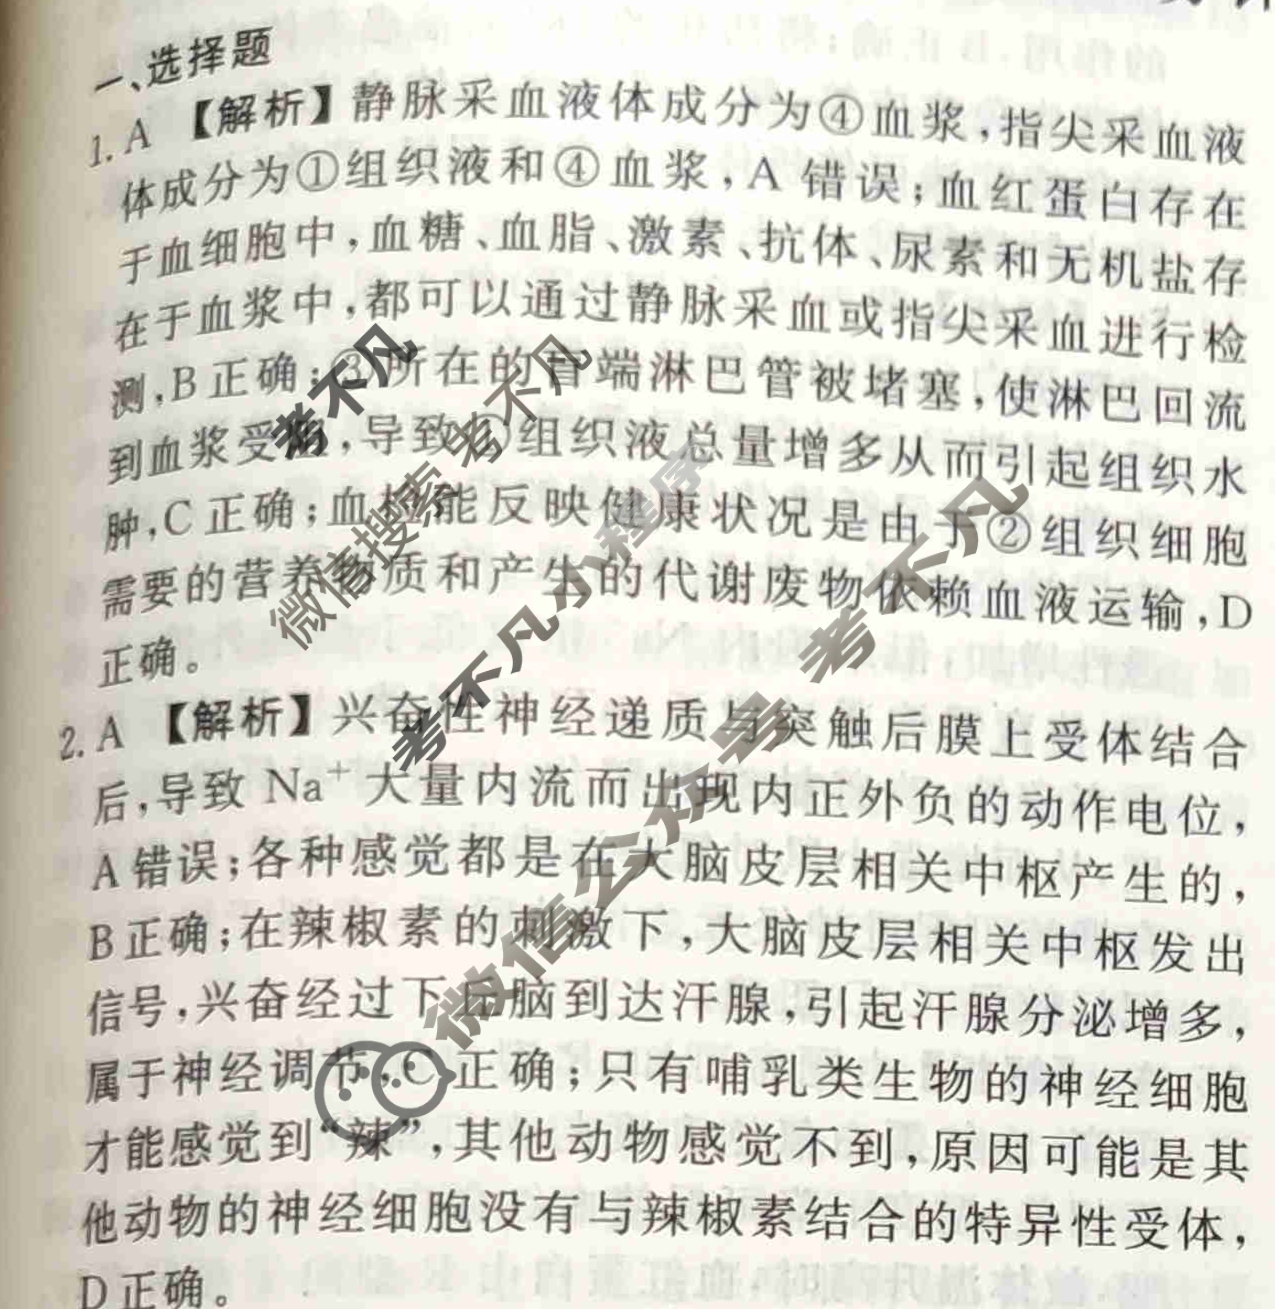 一、选择题
1. A 【解析】静脉采血液体成分为④血浆,指尖采血液
体成分为①组织液和④血浆,A 错误;血红蛋白存在
于血细胞中,血糖、血脂、激素、抗体、尿素和无机盐存
在于血浆中,都可以通过静脉采血或指尖采血进行检
测,B 正确;③所在的盲端淋巴管被堵塞,使淋巴回流
到血浆受阻,导致①组织液总量增多从而引起组织水
肿,C 正确;血检能反映健康状况是由于②组织细胞
需要的营养物质和产生的代谢废物依赖血液运输,D
正确。
2. A 【解析】兴奋性神经递质与突触后膜上受体结合
后,导致 Na⁺ 大量内流而出现内正外负的动作电位,
A 错误;各种感觉都是在大脑皮层相关中枢产生的,
B 正确;在辣椒素的刺激下,大脑皮层相关中枢发出
信号,兴奋经过下丘脑到达汗腺,引起汗腺分泌增多,
属于神经调节,C 正确;只有哺乳类生物的神经细胞
才能感觉到“辣”,其他动物感觉不到,原因可能是其
他动物的神经细胞没有与辣椒素结合的特异性受体,
D 正确。
考不凡
微信搜索 考不凡
考不凡小程序
微信公众号 考不凡